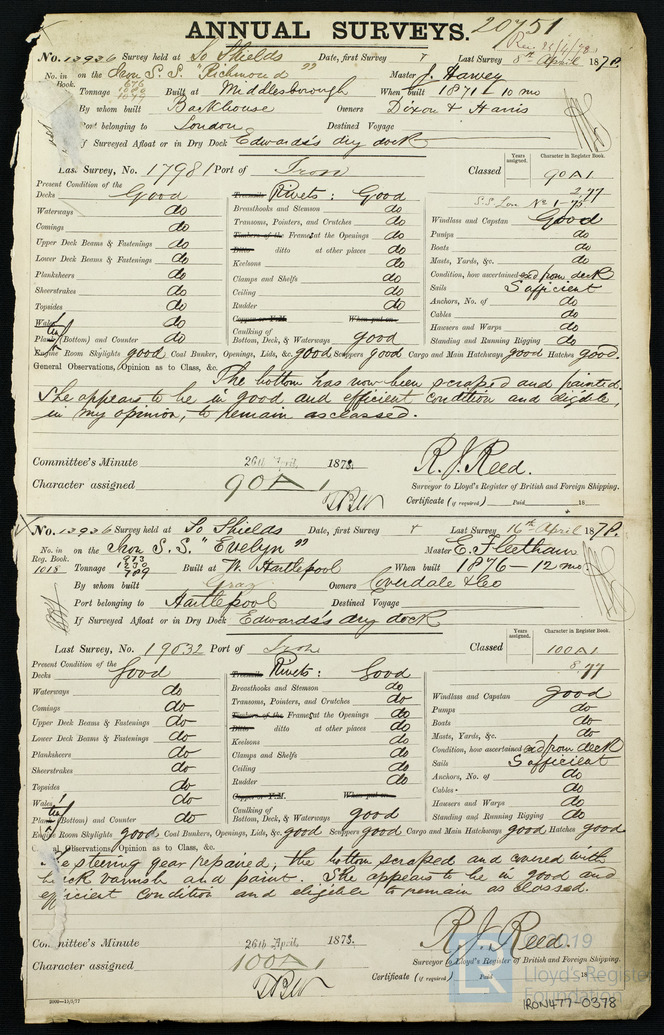 ANNUAL SURVEYS. 20751
Rec 25/4/78
No. 13936 Survey held at So Shields Date, first Survey Last Survey 8th April 1878.
No. in Book. on the Iron S.S. "Richmond" Master J. Harvey
Tonnage Built at Middlesborough When built 1871-10 mo
By whom built Backhouse Owners Dixon & Harris
Port belonging to London Destined Voyage
If Surveyed Afloat or in Dry Dock Edwards's dry dock
Last Survey, No. 17981 Port of Iron Classed Years assigned. Character in Register Book.
90A1
2,77
S.S. Lon. No 1-75
Present Condition of the
Decks Good Rivets: Good Windlass and Capstan Good
Waterways do Breasthooks and Stemson do Pumps do
Comings do Transoms, Pointers, and Crutches do Boats do
Upper Deck Beams & Fastenings do Timbers of the Frames at the Openings do Masts, Yards, &c. do
Lower Deck Beams & Fastenings do Ditto ditto at other places do Condition, how ascertained exd from deck
Planksheers do Keelsons do Sails Sufficient
Sheerstrakes do Clamps and Shelfs do Anchors, No. of do
Topsides do Ceiling do Cables do
Wales do Rudder do Hausers and Warps do
Plating (Bottom) and Counter do Copper or Y.M. When put on Standing and Running Rigging do
Caulking of Bottom, Deck, & Waterways good
Engine Room Skylights good Coal Bunker, Openings, Lids, &c. good Scuppers good Cargo and Main Hatchways good Hatches good.
General Observations, Opinion as to Class, &c.
The bottom has now been scraped and painted.
She appears to be in good and efficient condition and eligible,
in my opinion, to remain as classed.
Committee's Minute 26th April, 1878. R. J. Reed.
Character assigned 90A1 Surveyor to Lloyd's Register of British and Foreign Shipping.
Certificate (if required) Paid 18
No. 13936 Survey held at So Shields Date, first Survey Last Survey 16th April 1878.
No. in Reg. Book. on the Iron S.S. "Evelyn" Master E. Fleetham
1018 Tonnage 973 1230 789 Built at W. Hartlepool When built 1876-12 mo
By whom built Gray Owners Coverdale & Co
Port belonging to Hartlepool Destined Voyage
If Surveyed Afloat or in Dry Dock Edwards's dry dock
Last Survey, No. 19032 Port of Iron Classed Years assigned. Character in Register Book.
100A1
8,77
Present Condition of the
Decks Good Rivets: Good Windlass and Capstan good
Waterways do Breasthooks and Stemson do Pumps do
Comings do Transoms, Pointers, and Crutches do Boats do
Upper Deck Beams & Fastenings do Timbers of the Frames at the Openings do Masts, Yards, &c. do
Lower Deck Beams & Fastenings do Ditto ditto at other places do Condition, how ascertained exd from deck
Planksheers do Keelsons do Sails Sufficient
Sheerstrakes do Clamps and Shelfs do Anchors, No. of do
Topsides do Ceiling do Cables do
Wales do Rudder do Hausers and Warps do
Plating (Bottom) and Counter do Copper or Y.M. When put on Standing and Running Rigging do
Caulking of Bottom, Deck, & Waterways good
Engine Room Skylights good Coal Bunkers, Openings, Lids, &c. good Scuppers good Cargo and Main Hatchways good Hatches good
General Observations, Opinion as to Class, &c.
The steering gear repaired, the bottom scraped and covered with
black varnish and paint. She appears to be in good and
efficient condition and eligible to remain as classed.
Committee's Minute 26th April, 1878. R. J. Reed.
Character assigned 100A1 Surveyor to Lloyd's Register of British and Foreign Shipping.
Certificate (if required) Paid 18
2000-13/3/77
© 2019
Lloyd's Register
Foundation
IRON477-0378